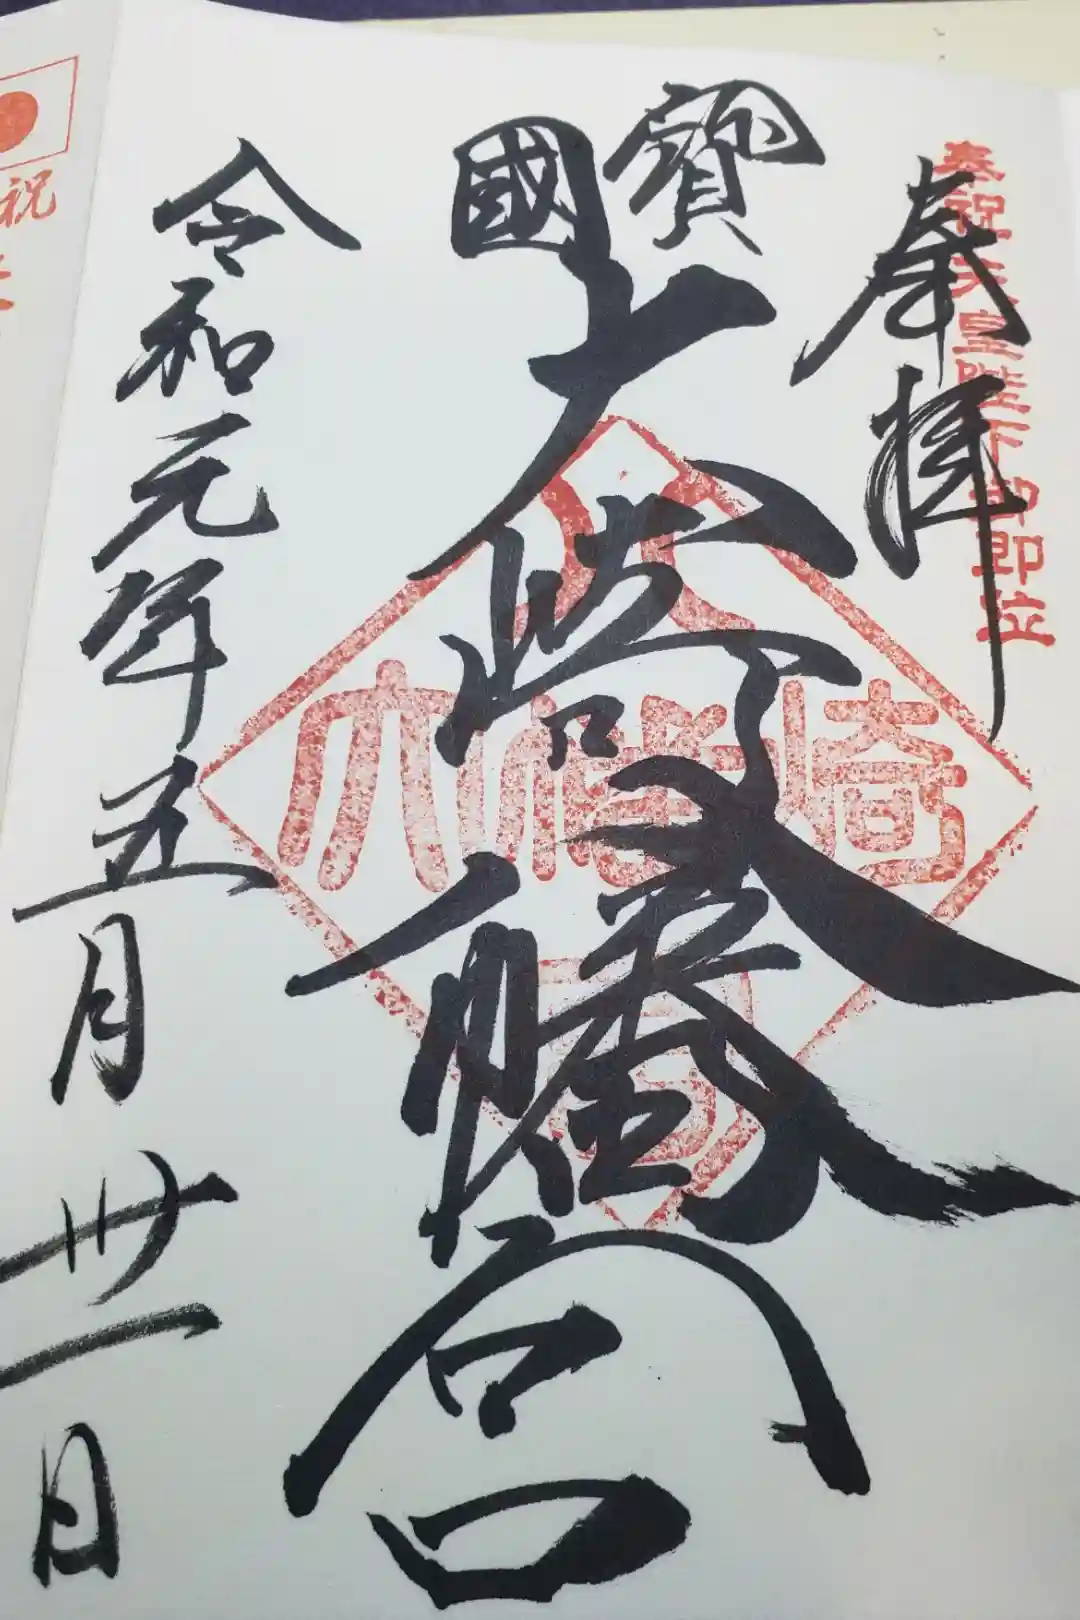 奉祝天皇陛下御即位
奉拝
國寶
大崎八幡宮
大崎八幡宮
令和元年五月卅一日
祝